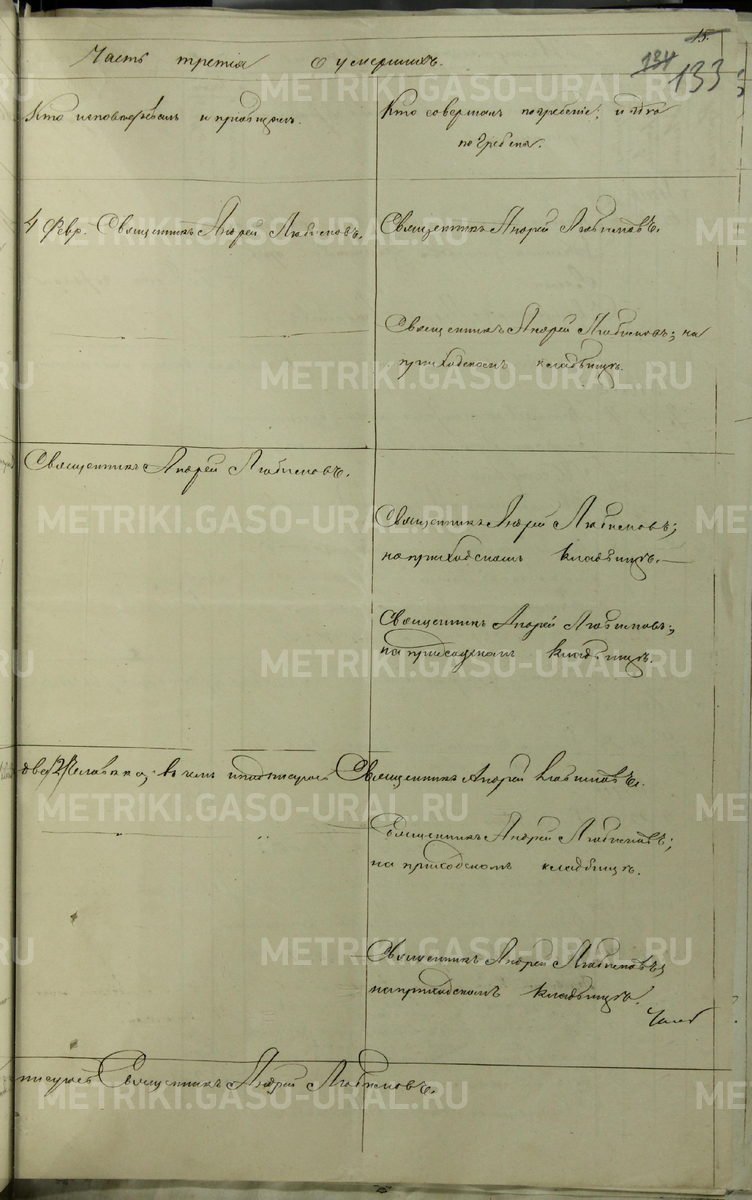 15.
Часть третія о умершихъ.
134 133
Кто исповѣдывалъ и пріобщалъ.
Кто совершалъ погребеніе, и гдѣ
погребены.
4 Февр. Священникъ Андрей Любимовъ.
Священникъ Андрей Любимовъ.
Священникъ Андрей Любимовъ; на
приходскомъ кладбищѣ.
Священникъ Андрей Любимовъ.
Священникъ Андрей Любимовъ;
на приходскомъ кладбищѣ.
Священникъ Андрей Любимовъ;
на приходскомъ кладбищѣ.
два /2/ человѣка; въ чемъ и подписуюсь Священникъ Андрей Любимовъ.
Священникъ Андрей Любимовъ;
на приходскомъ кладбищѣ.
Священникъ Андрей Любимовъ;
на приходскомъ кладбищѣ.
писуюсь Священникъ Андрей Любимовъ.
METRIKI.GASO-URAL.RU